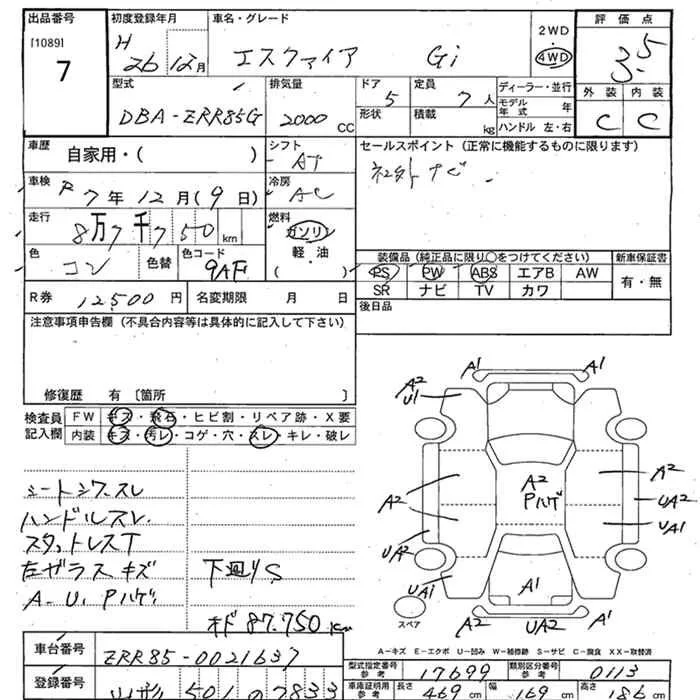 出品番号 初度登録年月 車名・グレード 2WD 評価点
[1089] H 26 12月 エスクァイア Gi 4WD 3.5
7
型式 排気量 ドア 定員 ディーラー・並行 外装 内装
DBA-ZRR85G 2000CC 5 7人 モデル年式 年 C C
形状 積載 kg ハンドル 左・右
車歴 自家用・( ) シフト AT セールスポイント(正常に機能するものに限ります)
車検 R7年12月(9日) 冷房 AC 社外ナビ
走行 8万7千750km 燃料 ガソリン
軽・油
色 コン 色替 色コード 9AF 装備品(純正品に限り○をつけてください) 新車保証書
( ) PS PW ABS エアB AW 有・無
R券 12,500円 名変期限 月 日 SR ナビ TV カワ
注意事項申告欄(不具合内容等は具体的に記入して下さい) 後日品
修復歴 有〔箇所 〕
検査員 FW キズ・飛石・ヒビ割・リペア跡・X要
記入欄 内装 キズ・汚レ・コゲ・穴・スレ・キレ・破レ
シートシワ、スレ
ハンドルスレ
スタットレスT
左ガラスキズ 下廻りS
A-U、Pハゲ
オド 87.750km
A1 A1
A2
U1
A2 A2 A2
Pハゲ UA2
UA2 UA1
UA1 A1
スペア A2 UA2 A1
A-キズ E-エクボ U-凹み W-補修跡 S-サビ C-腐食 XX-取替済
車台番号 ZRR85-0021637 型式指定番号 参考 17699 類別区分番号 参考 0113
登録番号 山形 501 の 7833 車庫証明用 参考 長さ 469cm 幅 169cm 高さ 186cm